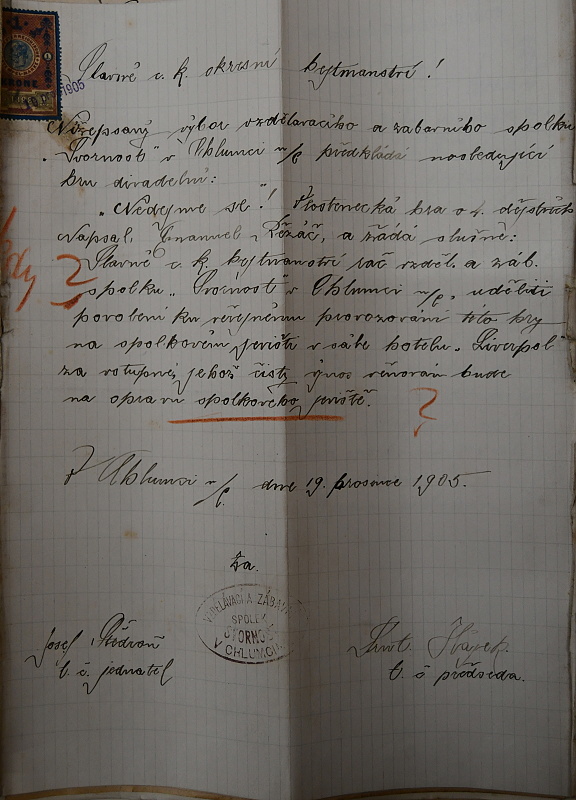 1905
Slavné c. k. okresní hejtmanství!
Nížepsaný výbor vzdělavacího a zabavního spolku
„Svornost" v Chlumci n/c předkládá nasledující
hru divadelní:
„Nedejme se"! Vlastenecká hra o 4. dějstvích
Napsal, Emanuel Řezáč, a žádá slušně:
Slavné c. k. hejtmanství rač vzděl. a záb.
spolku „Svornost" v Chlumci n/c, uděliti
povolení ku veřejnému provozování této hry
na spolkovém jevišti v sále hotelu „Liverpol"
za vstupné, jehož čistý výnos věnován bude
na opravu spolkového jeviště.
kdy ?
?
V Chlumci n/c. dne 19. prosince 1905.
Za.
VZDĚLAVACÍ A ZÁBAVNÍ
SPOLEK
SVORNOST
V CHLUMCI
Josef
t. č. jednatel
Ant. Hájek
t. č předseda.